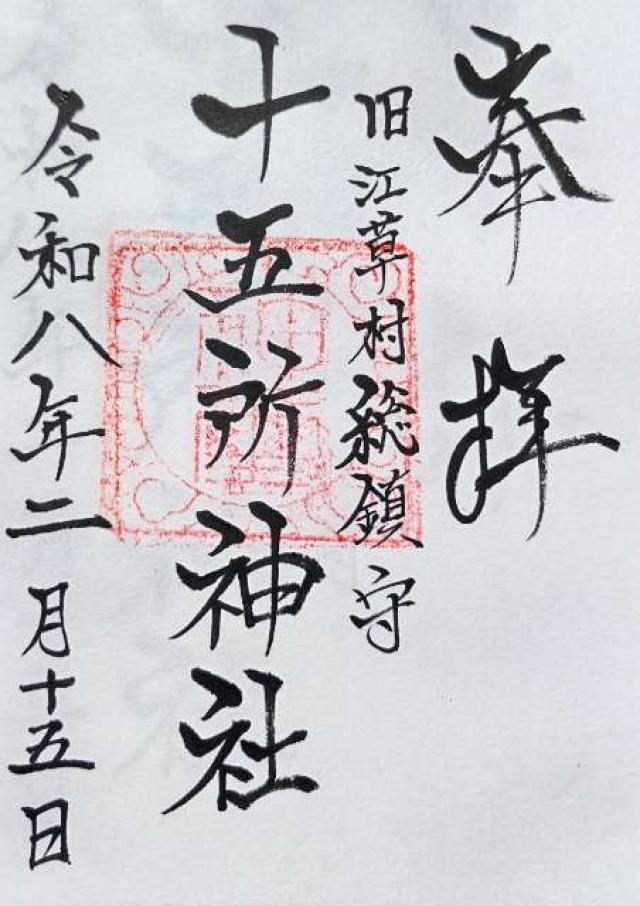 奉拝
旧江草村総鎮守
十五所神社
令和八年二月十五日